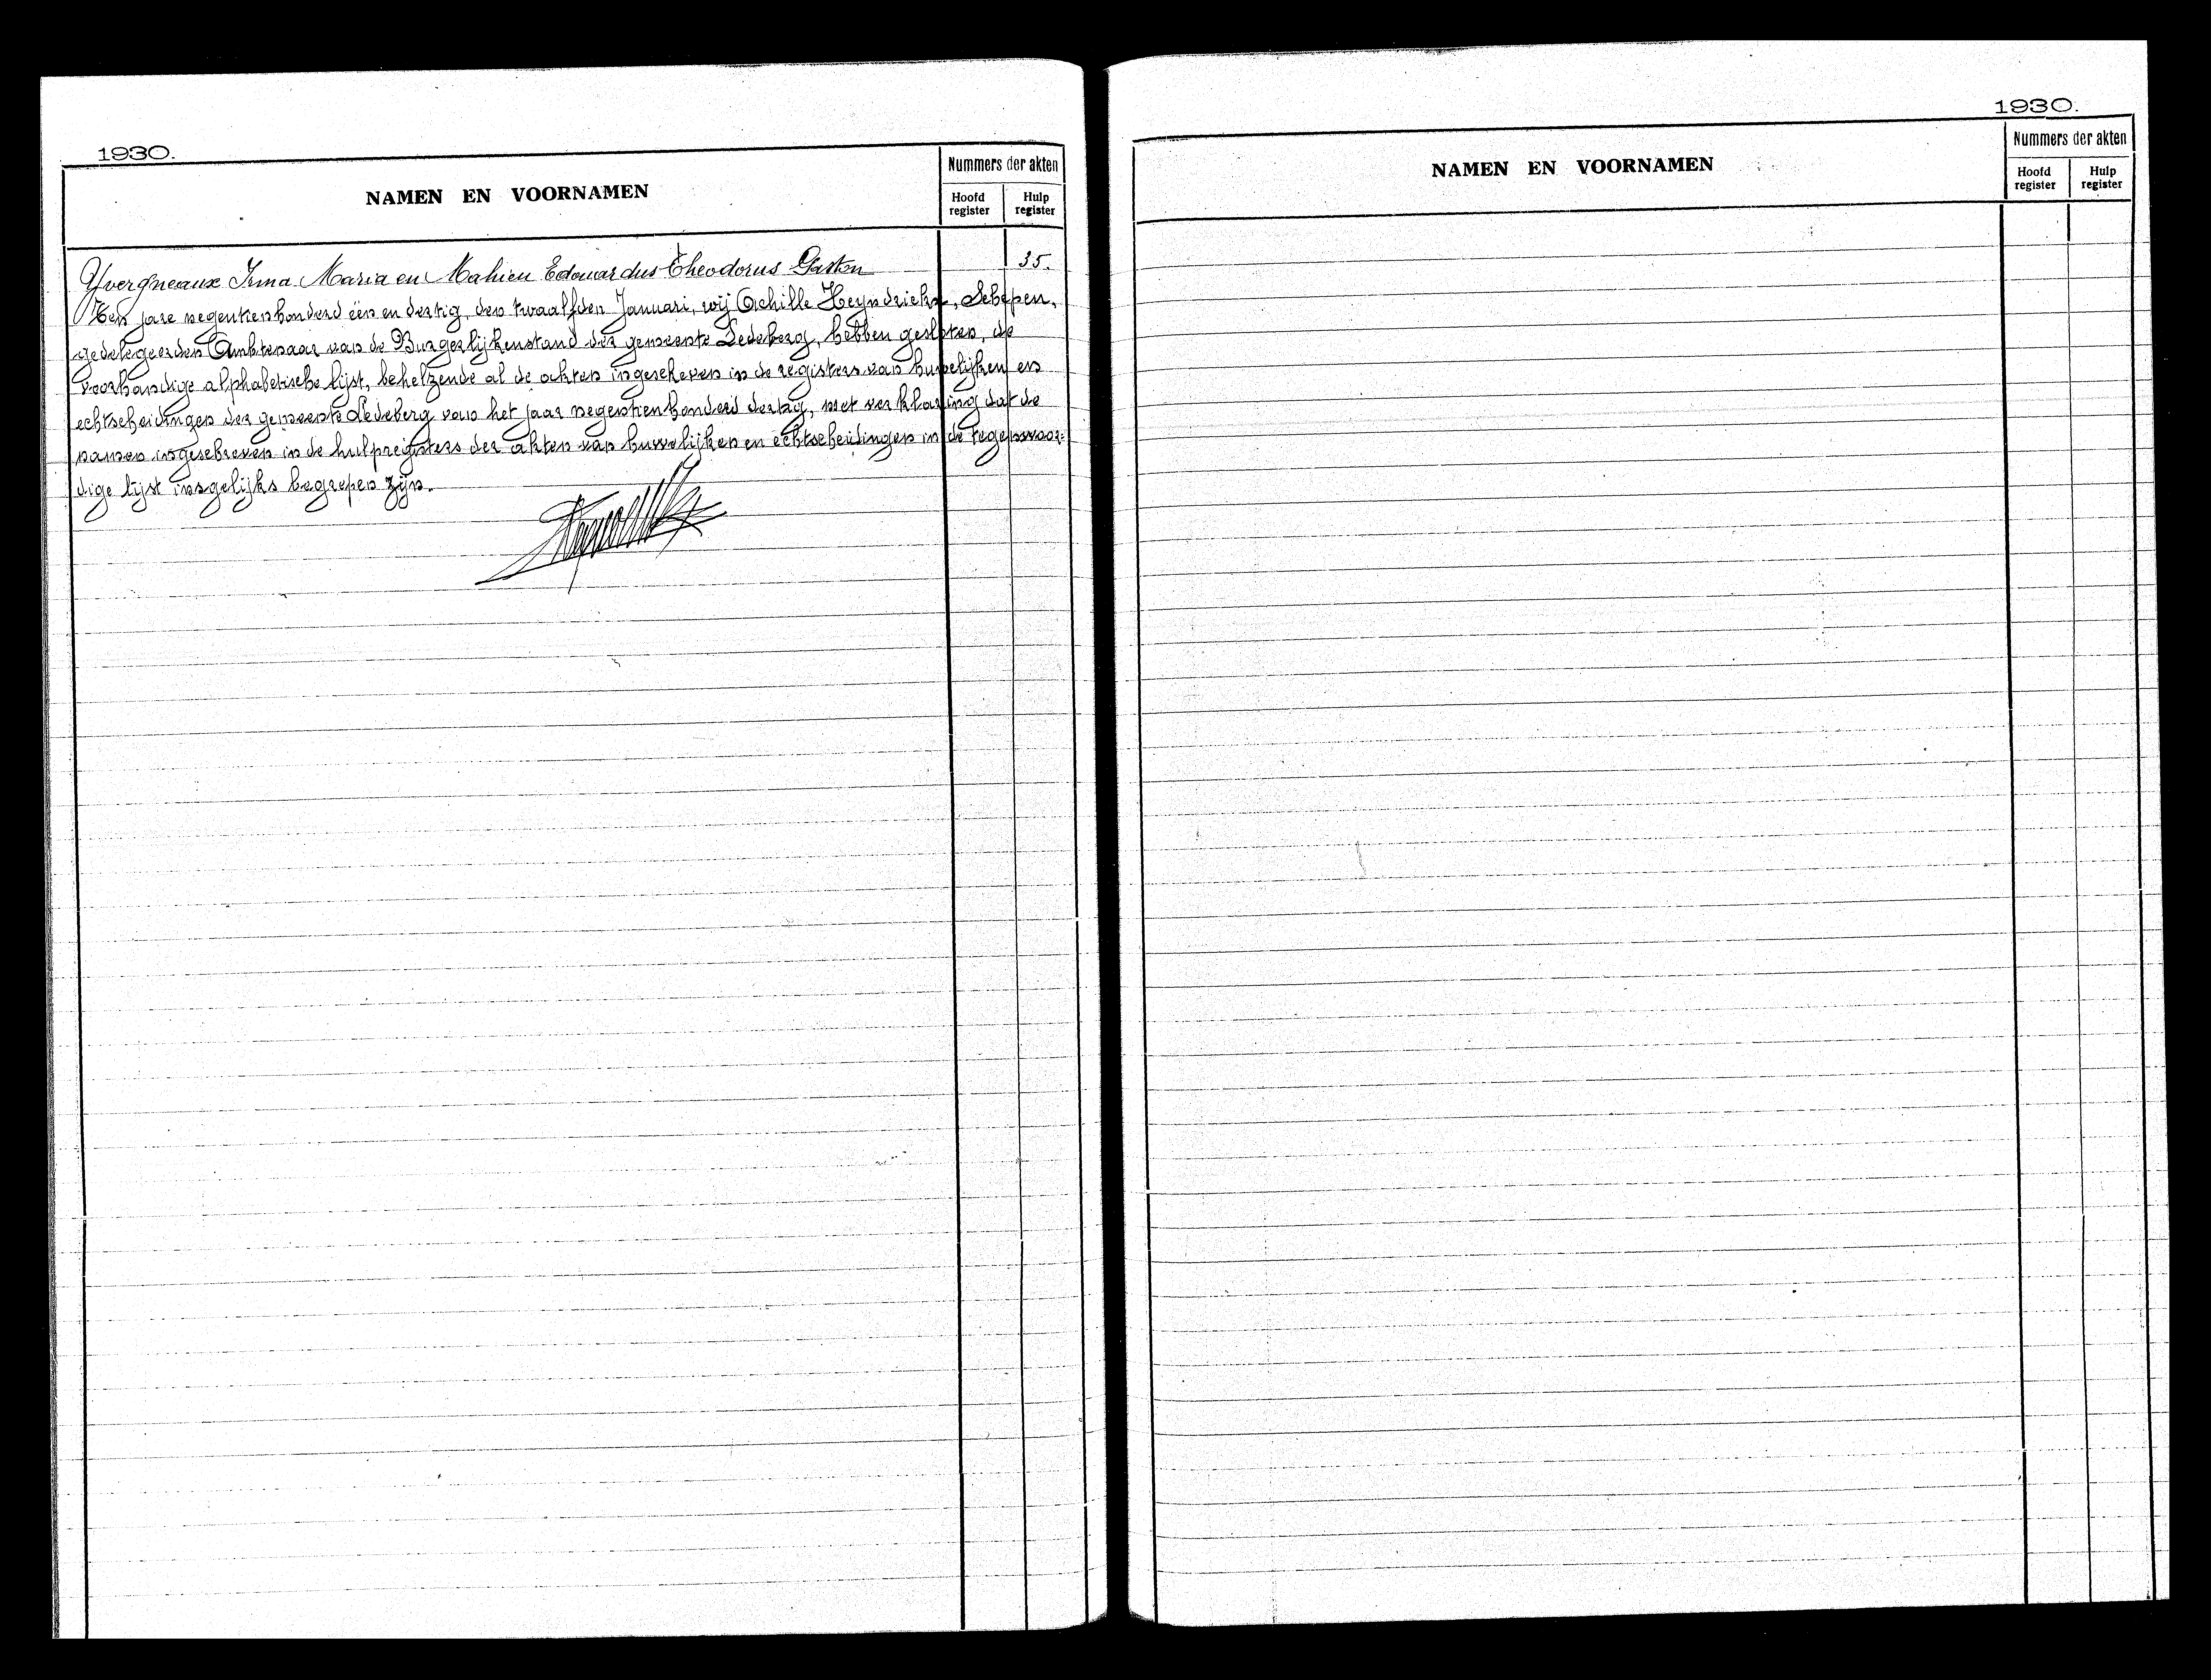 1930.
NAMEN EN VOORNAMEN
Nummers der akten
Hoofd register
Hulp register
Yvergneaux Irma Maria en Mahieu Edouardus Theodorus Gaston 35.
Ten jare negentienhonderd één en dertig, den twaalfden Januari, wij Achille Heyndrickx, Schepen,
gedelegeerden Ambtenaar van de Burgerlijkenstand der gemeente Ledeberg, hebben gesloten, de
voorhandige alphabetische lijst, behelzende al de akten ingeschreven in de registers van huwelijken en
echtscheidingen der gemeente Ledeberg van het jaar negentienhonderd dertig, met verklaring dat de
namen ingeschreven in de hulpregisters der akten van huwelijken en echtscheidingen in de tegenwoor=
dige lijst insgelijks begrepen zijn.
1930.
NAMEN EN VOORNAMEN
Nummers der akten
Hoofd register
Hulp register